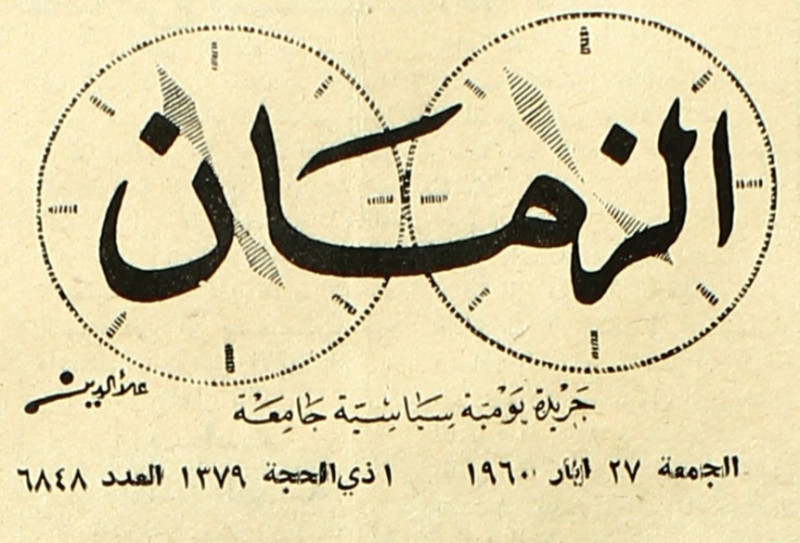 الزمان
علاءالدين
جَرْيَدة يَوْميَة سِيَاسِيَة جَامِعَة
الجمعة ٢٧ ايار ١٩٦٠ ١ ذي الحجة ١٣٧٩ العدد ٦٨٤٨